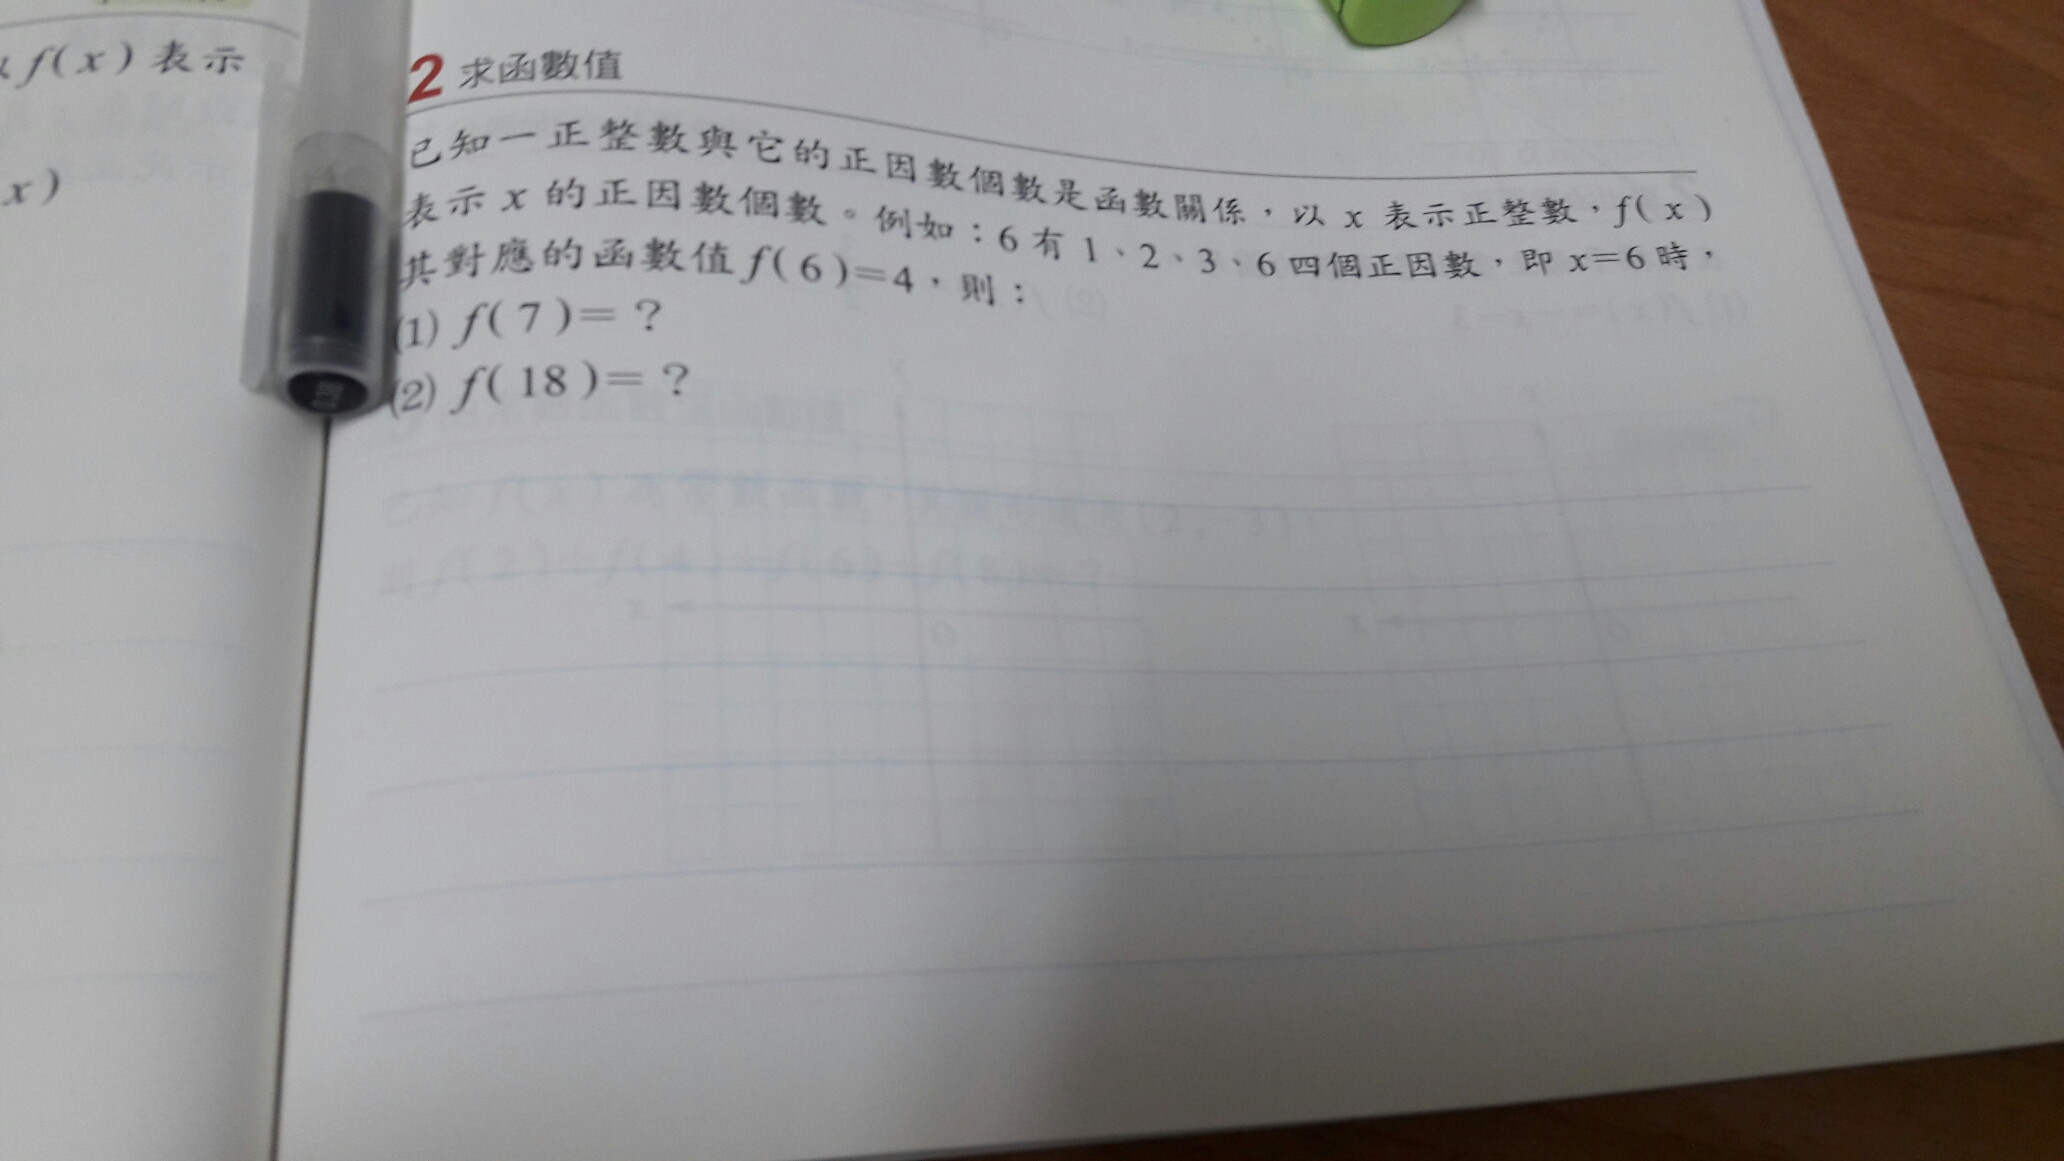 f(x)表示
x)
2 求函數值
已知一正整數與它的正因數個數是函數關係，以 x 表示正整數，f(x)
表示 x 的正因數個數。例如：6有1、2、3、6四個正因數，即 x=6時，
其對應的函數值f(6)=4，則：
(1) f(7)=？
(2) f(18)=？